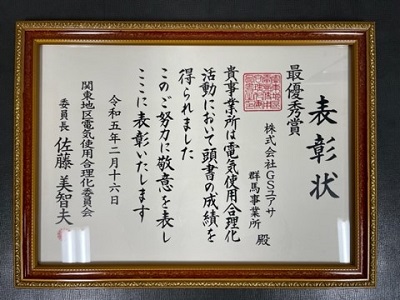 表彰状
最優秀賞
株式会社GSユアサ
群馬事業所 殿
貴事業所は電気使用合理化
活動において頭書の成績を
得られました
このご努力に敬意を表し
ここに表彰いたします
令和五年二月十六日
関東地区電気使用合理化委員会
委員長 佐藤美智夫